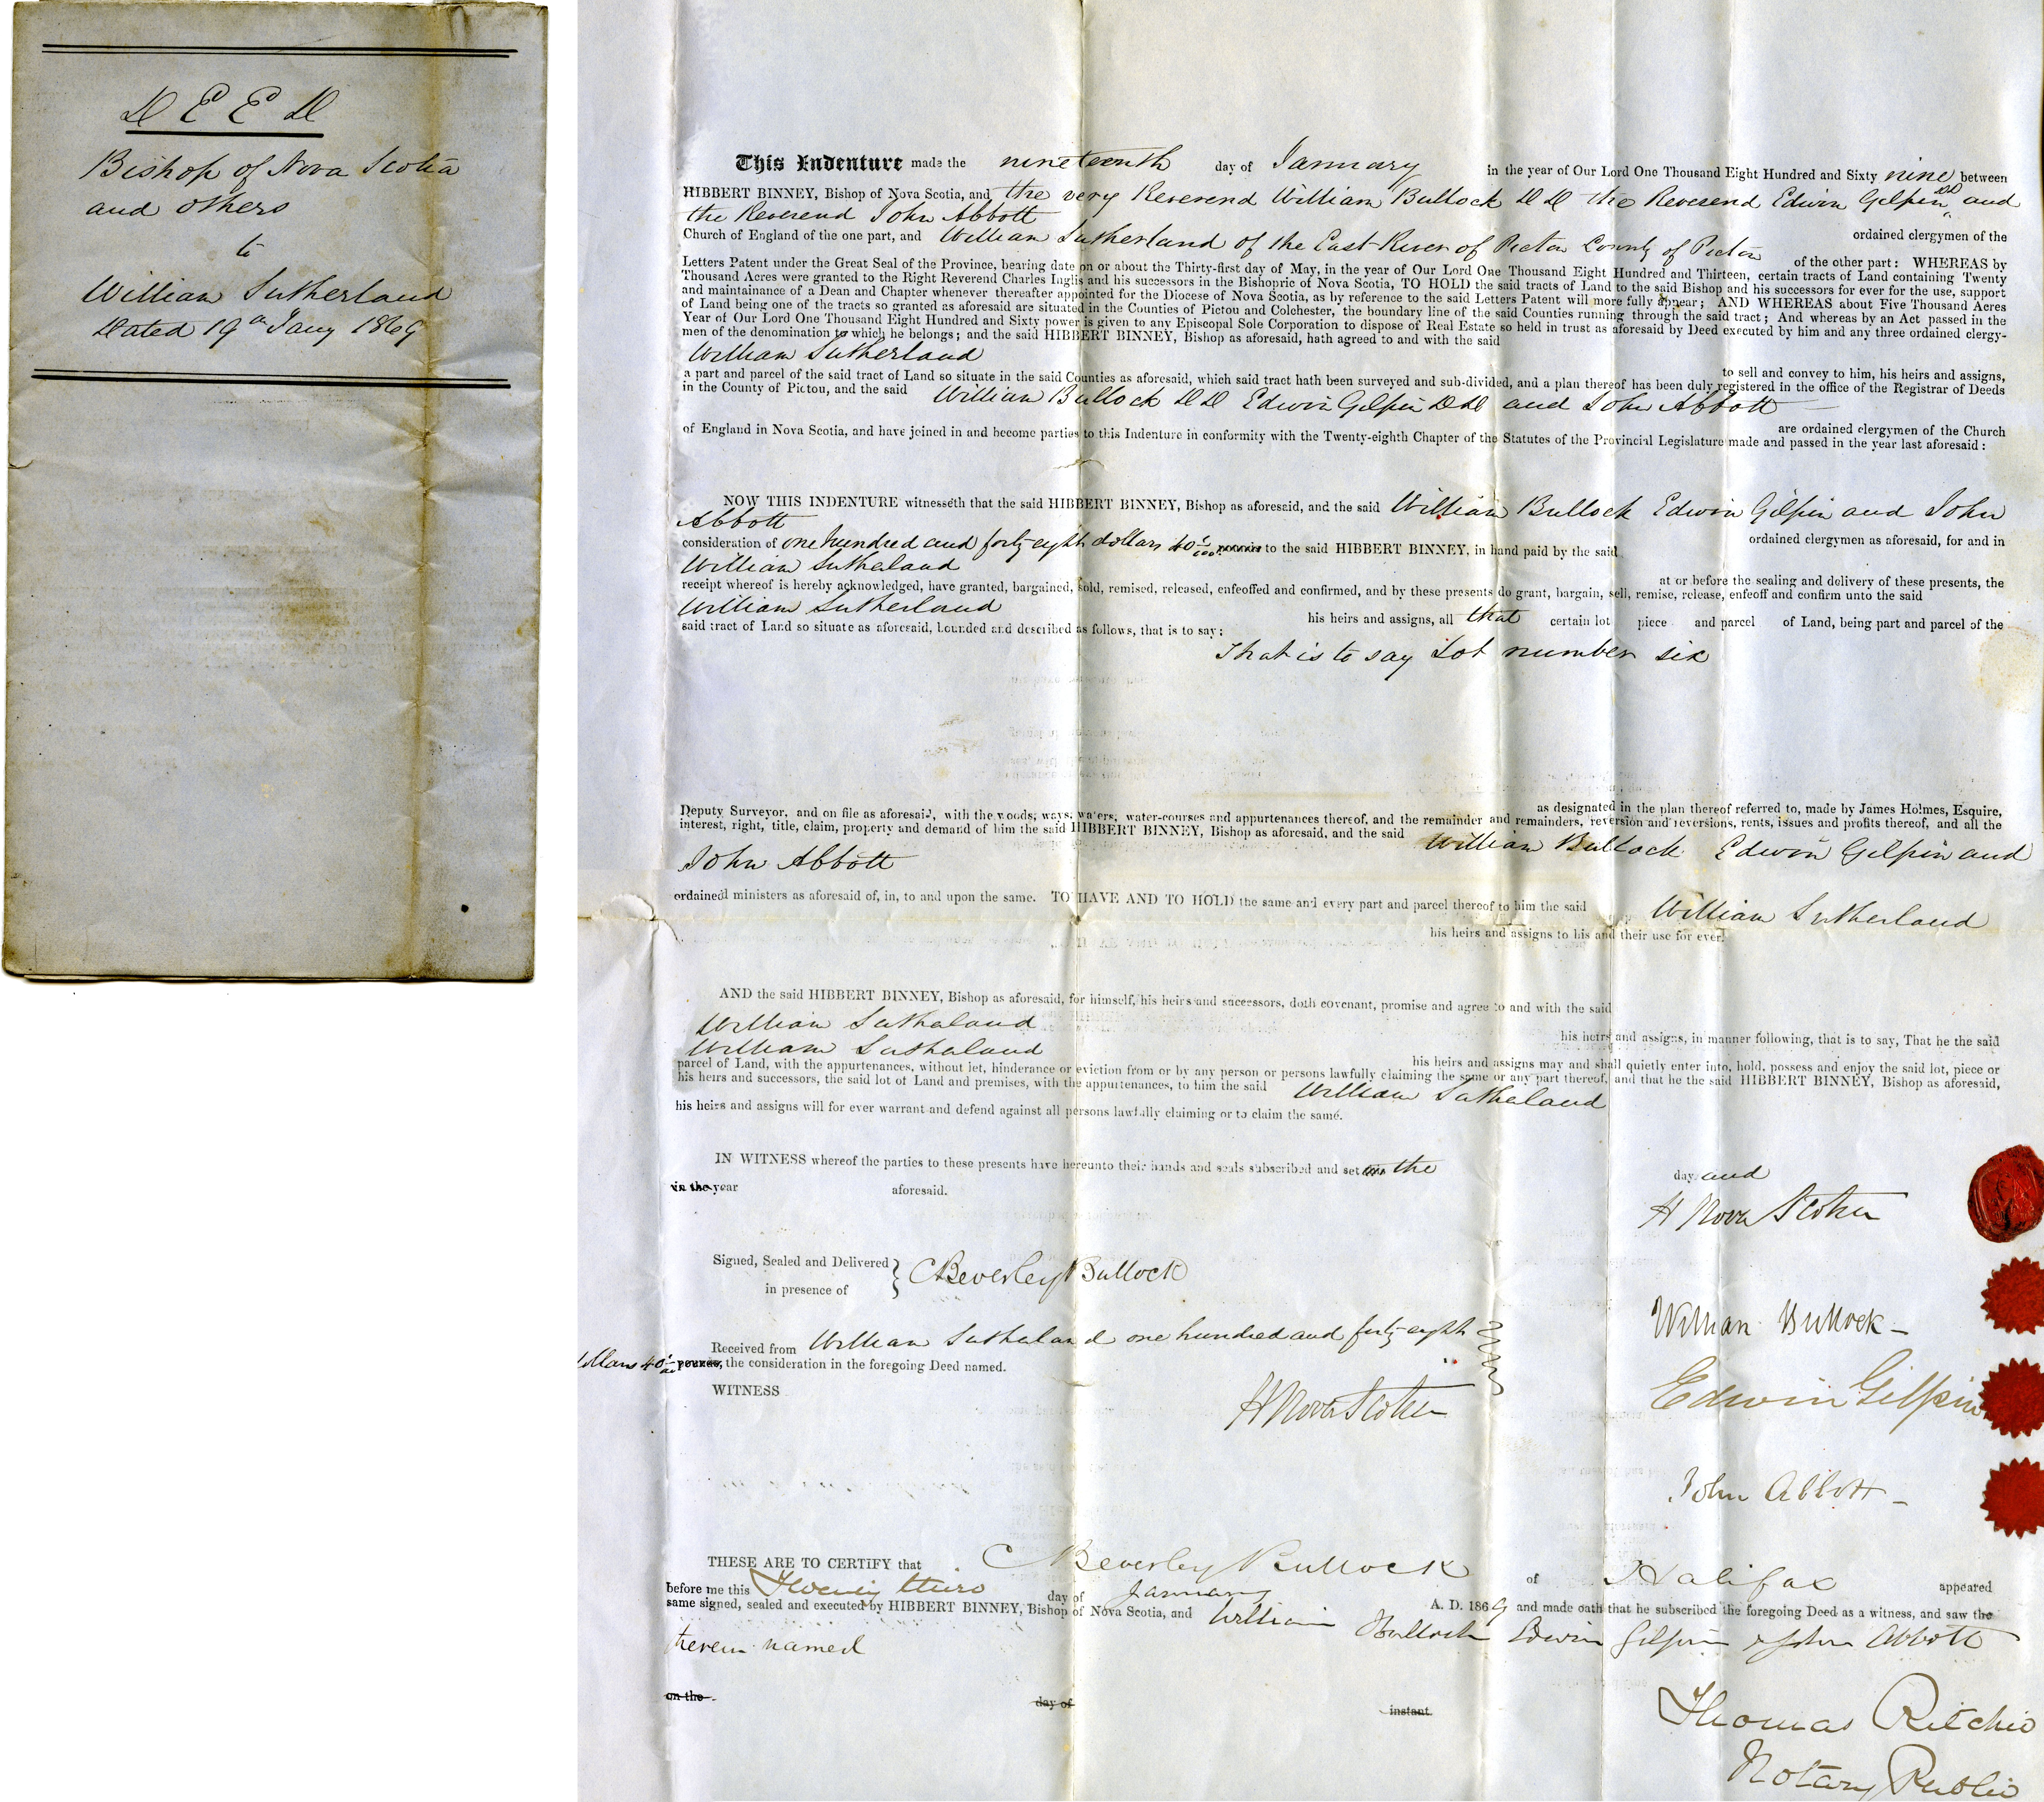 DEED
Bishop of Nova Scotia
and others
to
William Sutherland
Dated 19th Jany 1869
This Indenture made the nineteenth day of January in the year of Our Lord One Thousand Eight Hundred and Sixty nine between
HIBBERT BINNEY, Bishop of Nova Scotia, and the very Reverend William Bullock DD the Reverend Edwin Gilpin DD and
the Reverend John Abbott
ordained clergymen of the
Church of England of the one part, and William Sutherland of the East River of Pictou County of Pictou
of the other part: WHEREAS by
Letters Patent under the Great Seal of the Province, bearing date on or about the Thirty-first day of May, in the year of Our Lord One Thousand Eight Hundred and Thirteen, certain tracts of Land containing Twenty
Thousand Acres were granted to the Right Reverend Charles Inglis and his successors in the Bishopric of Nova Scotia, TO HOLD the said tracts of Land to the said Bishop and his successors for ever for the use, support
and maintainance of a Dean and Chapter whenever thereafter appointed for the Diocese of Nova Scotia, as by reference to the said Letters Patent will more fully appear; AND WHEREAS about Five Thousand Acres
of Land being one of the tracts so granted as aforesaid are situated in the Counties of Pictou and Colchester, the boundary line of the said Counties running through the said tract; And whereas by an Act passed in the
Year of Our Lord One Thousand Eight Hundred and Sixty power is given to any Episcopal Sole Corporation to dispose of Real Estate so held in trust as aforesaid by Deed executed by him and any three ordained clergy-
men of the denomination to which he belongs; and the said HIBBERT BINNEY, Bishop as aforesaid, hath agreed to and with the said
William Sutherland
to sell and convey to him, his heirs and assigns,
a part and parcel of the said tract of Land so situate in the said Counties as aforesaid, which said tract hath been surveyed and sub-divided, and a plan thereof has been duly registered in the office of the Registrar of Deeds
in the County of Pictou, and the said William Bullock DD Edwin Gilpin DD and John Abbott
are ordained clergymen of the Church
of England in Nova Scotia, and have joined in and become parties to this Indenture in conformity with the Twenty-eighth Chapter of the Statutes of the Provincial Legislature made and passed in the year last aforesaid:
NOW THIS INDENTURE witnesseth that the said HIBBERT BINNEY, Bishop as aforesaid, and the said William Bullock Edwin Gilpin and John
Abbott
ordained clergymen as aforesaid, for and in
consideration of one hundred and forty eight dollars 40/100 pounds to the said HIBBERT BINNEY, in hand paid by the said
William Sutherland
at or before the sealing and delivery of these presents, the
receipt whereof is hereby acknowledged, have granted, bargained, sold, remised, released, enfeoffed and confirmed, and by these presents do grant, bargain, sell, remise, release, enfeoff and confirm unto the said
William Sutherland
his heirs and assigns, all that certain lot piece and parcel of Land, being part and parcel of the
said tract of Land so situate as aforesaid, bounded and described as follows, that is to say:
That is to say Lot number six
as designated in the plan thereof referred to, made by James Holmes, Esquire,
Deputy Surveyor, and on file as aforesaid, with the woods, ways, waters, water-courses and appurtenances thereof, and the remainder and remainders, reversion and reversions, rents, issues and profits thereof, and all the
interest, right, title, claim, property and demand of him the said HIBBERT BINNEY, Bishop as aforesaid, and the said William Bullock Edwin Gilpin and
John Abbott
ordained ministers as aforesaid of, in, to and upon the same. TO HAVE AND TO HOLD the same and every part and parcel thereof to him the said William Sutherland
his heirs and assigns to his and their use for ever.
AND the said HIBBERT BINNEY, Bishop as aforesaid, for himself, his heirs and successors, doth covenant, promise and agree to and with the said
William Sutherland
his heirs and assigns, in manner following, that is to say, That he the said
William Sutherland
his heirs and assigns may and shall quietly enter into, hold, possess and enjoy the said lot, piece or
parcel of Land, with the appurtenances, without let, hinderance or eviction from or by any person or persons lawfully claiming the same or any part thereof, and that he the said HIBBERT BINNEY, Bishop as aforesaid,
his heirs and successors, the said lot of Land and premises, with the appurtenances, to him the said William Sutherland
his heirs and assigns will for ever warrant and defend against all persons lawfully claiming or to claim the same.
IN WITNESS whereof the parties to these presents have hereunto their hands and seals subscribed and set the day and
in the year aforesaid.
H Nova Scotia
Signed, Sealed and Delivered
in presence of
C Beverley Bullock
William Bullock
Received from William Sutherland one hundred and forty eight
dollars 40/100 pounds, the consideration in the foregoing Deed named.
WITNESS
H Nova Scotia
Edwin Gilpin
John Abbott
THESE ARE TO CERTIFY that C Beverley Bullock of Halifax appeared
before me this Twenty third day of January A. D. 1869 and made oath that he subscribed the foregoing Deed as a witness, and saw the
same signed, sealed and executed by HIBBERT BINNEY, Bishop of Nova Scotia, and William Bullock Edwin Gilpin & John Abbott
therein named
on the day of instant.
Thomas Ritchie
Notary Public